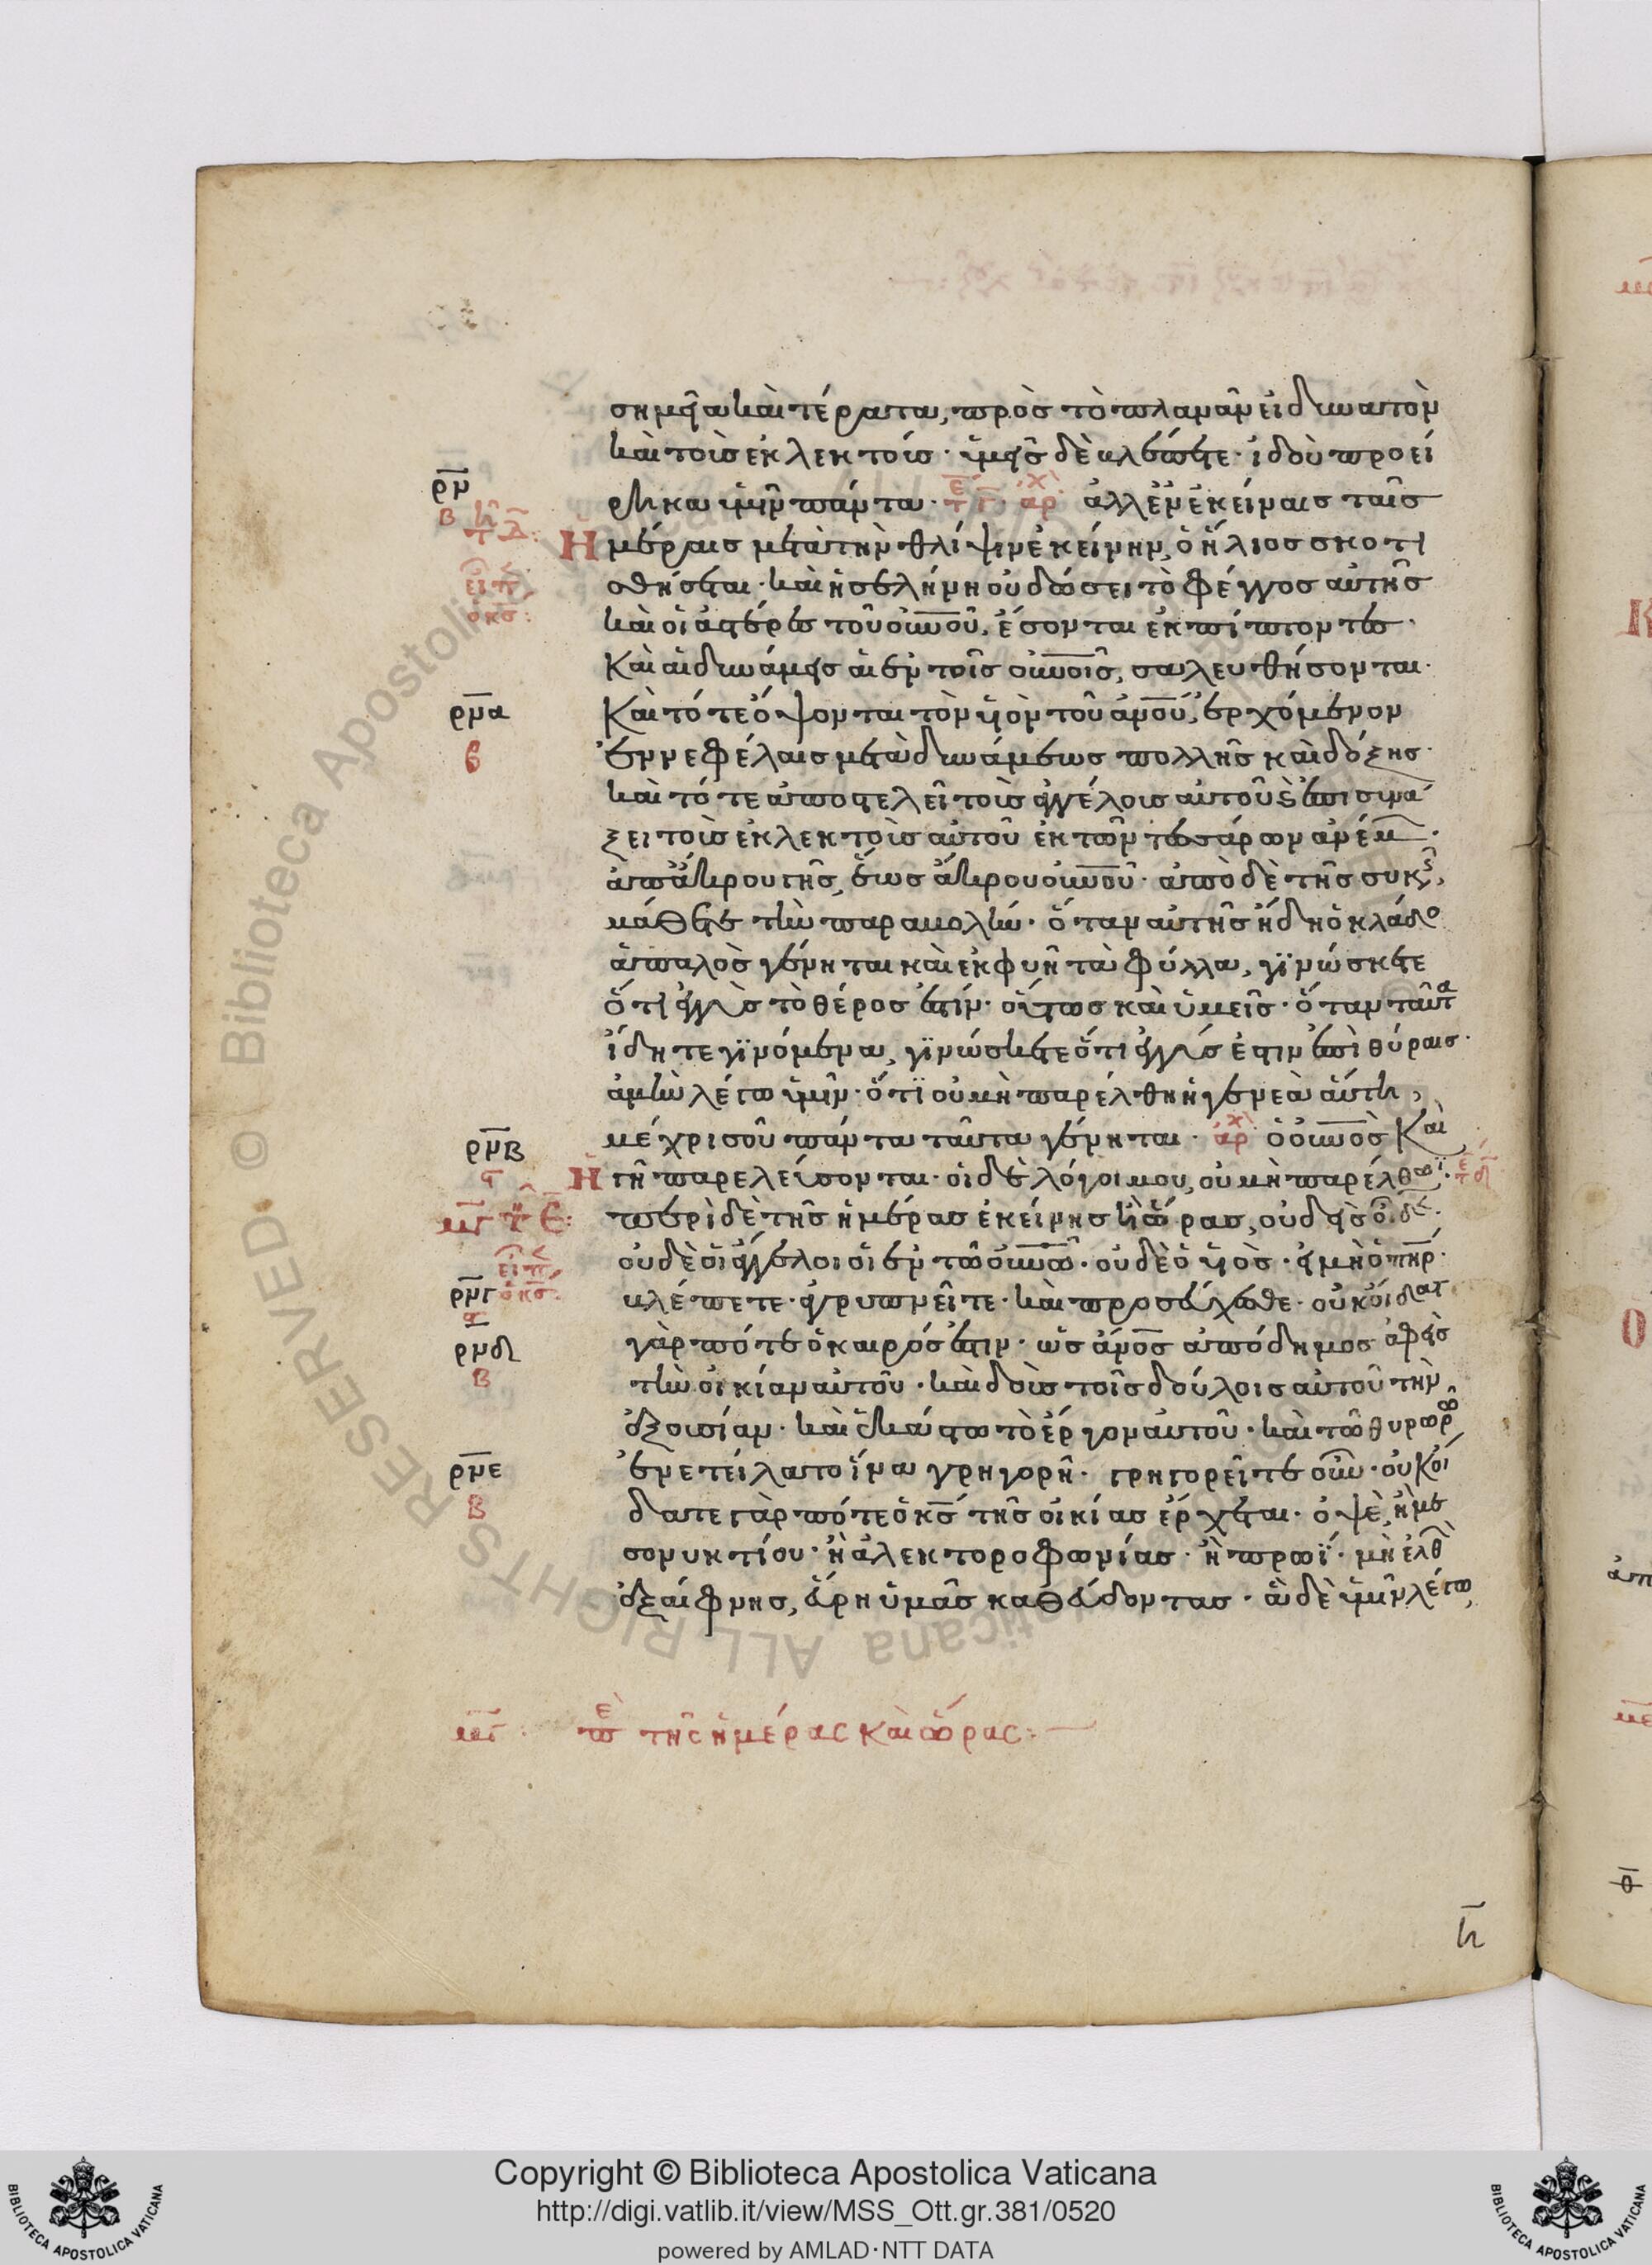 σημεῖα καὶ τέρατα, πρὸς τὸ πλανᾶν εἰ δυνατὸν
καὶ τοὺς ἐκλεκτούς· ὑμεῖς δὲ βλέπετε· ἰδοὺ προεί
ρηκα ὑμῖν πάντα· ἀρχ ἀλλ ἐν ἐκείναις ταῖς
ρν
β
Ἡμέραις μετὰ τὴν θλίψιν ἐκείνην, ὁ ἥλιος σκοτι
σθήσεται· καὶ ἡ σελήνη οὐ δώσει τὸ φέγγος αὐτῆς
εἶπ
ὁ κς:
καὶ οἱ ἀστέρες τοῦ οὐνοῦ, ἔσονται ἐκπίπτοντες·
Καὶ αἱ δυνάμεις αἱ ἐν τοῖς οὐνοις, σαλευθήσονται·
ρμα
β
Καὶ τότε ὄψονται τὸν υἱὸν τοῦ ἀνου, ἐρχόμενον
ἐν νεφέλαις μετὰ δυνάμεως πολλῆς καὶ δόξης·
καὶ τότε ἀποστελεῖ τοὺς ἀγγέλους αὐτοῦ ϗ ἐπισυνά
ξει τοὺς ἐκλεκτοὺς αὐτοῦ ἐκ τῶν τεσσάρων ἀνέμ·
ἀπ ἄκρου γῆς, ἕως ἄκρου οὐνου· ἀπὸ δὲ τῆς συκῆς,
μάθετε τὴν παραβολήν· ὅταν αὐτῆς ἤδη ὁ κλάδο
ἁπαλὸς γένηται καὶ ἐκφυῆ τὰ φύλλα, γϊνώσκετε
ὅτι ἐγγὺς τὸ θέρος ἐστίν· οὕτως καὶ ὑμεῖς· ὅταν ταῦτα
ἴδητε γϊνόμενα, γϊνώσκετε ὅτι ἐγγύς ἐστιν ἐπὶ θύραις·
ἀμὴν λέγω ὑμῖν· ὅτϊ οὐ μὴ παρέλθη ἡ γενεὰ αὕτη,
μέχρις οὗ πάντα ταῦτα γένηται· ἀρχ ὁ οὐνος Καὶ
ρμβ
Ἡ γῆ παρελεύσονται· οἱ δὲ λόγοι μου, οὐ μὴ παρέλθωσϊ·
περὶ δὲ τῆς ἡμέρας ἐκείνης ἢ ὥρας, οὐδεὶς οἶδε·
οὐδὲ οἱ ἄγγελοι οἱ ἐν τῶ οὐνω· οὐδὲ ὁ υἱὸς· εἰ μὴ ὁ πηρ·
εἶπ
ρμγ ὁ κς:
βλέπετε· ἀγρυπνεῖτε· καὶ προσεύχεσθε· οὐκ οἴδατ
ρμδ
β
γὰρ πότε ὁ καιρός ἐστιν· ὡς ἀνος ἀπόδημος ἀφεὶς
τὴν οἰκίαν αὐτοῦ· καὶ δοὺς τοῖς δούλοις αὐτοῦ τὴν
ἐξουσίαν· καὶ ἑκάστω τὸ ἔργον αὐτοῦ· καὶ τῶ θυρωρῶ
ρμε
β
ἐνετείλατο ἵνα γρηγορῆ· γρηγορεῖτε οὖν· οὐκ οἴ
δατε γὰρ πότε ὁ κς τῆς οἰκίας ἔρχεται· ὀψὲ, ἢ με
σονυκτίου· ἢ ἀλεκτοροφωνίας· ἢ πρωϊ· μὴ ἐλθ
ἐξαίφνης, εὕρη ὑμᾶς καθεύδοντας· ἃ δὲ ὑμῖν λέγω,
μγ: πε τῆς ἡμέρας καὶ ὥρας:
Copyright © Biblioteca Apostolica Vaticana
http://digi.vatlib.it/view/MSS_Ott.gr.381/0520
powered by AMLAD·NTT DATA
BIBLIOTECA APOSTOLICA VATICANA
BIBLIOTECA APOSTOLICA VATICANA
© Biblioteca Apostolica Vaticana ALL RIGHTS RESERVED